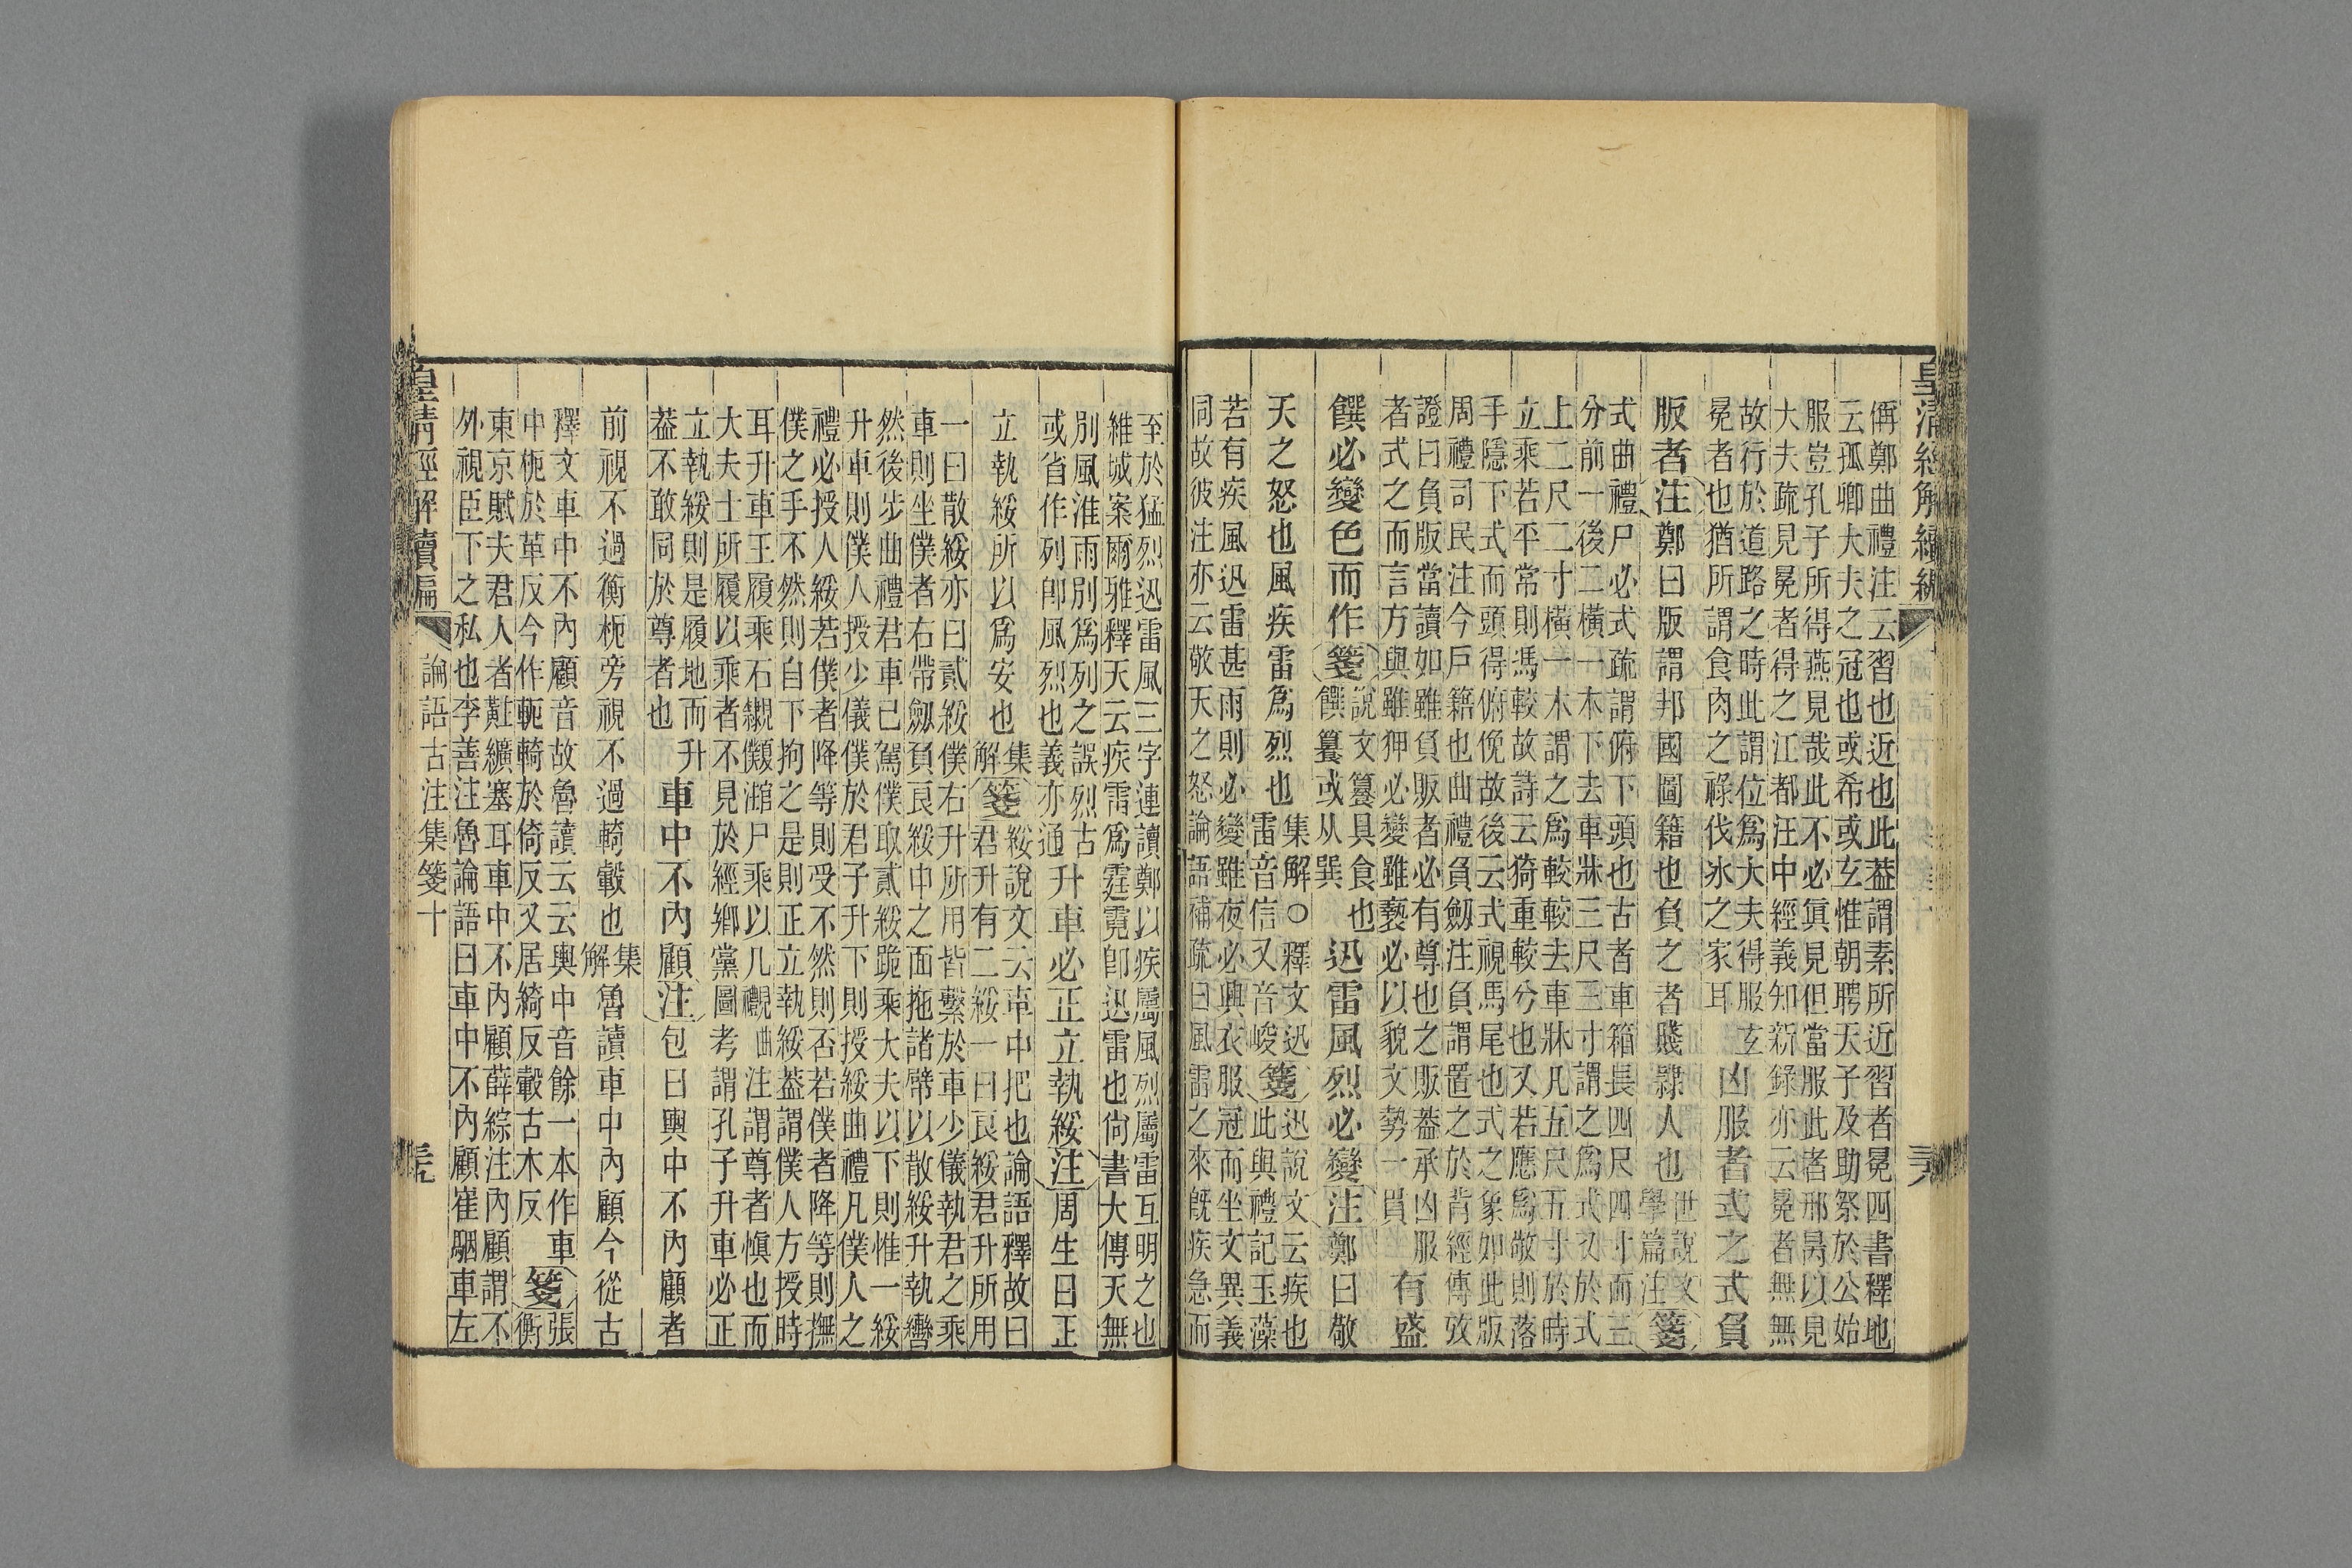 皇清經解續編
偁鄭曲禮注云習也近也此葢謂素所近習者冕四書釋地
云孤卿大夫之冠也或希或玄惟朝聘天子及助祭於公始
服豈孔子所得燕見哉此不必眞見但當服此者邢昺以見
大夫疏見冕者得之江都汪中經義知新錄亦云冕者無無
故行於道路之時此謂位爲大夫得服玄
冕者也猶所謂食肉之祿伐冰之家耳
凶服者式之式負
版者注鄭曰版謂邦國圖籍也負之者賤隸人也
世說文
學篇注
箋
式曲禮尸必式疏謂俯下頭也古者車箱長四尺四寸而三
分前一後二橫一木下去車牀三尺三寸謂之爲式又於式
上二尺二寸橫一木謂之爲較較去車牀凡五尺五寸於時
立乘若平常則馮較故詩云猗重較兮也又若應爲敬則落
手隱下式而頭得俯俛故後云式視馬尾也式之象如此版
周禮司民注今戶籍也曲禮負劒注負謂置之於背經傳攷
證曰負版當讀如雖負販者必有尊也之販葢承凶服
者式之而言方與雖狎必變雖褻必以貌文勢一貫
有盛
饌必變色而作箋
說文籑具食也
饌籑或从巽
迅雷風烈必變注鄭曰敬
天之怒也風疾雷爲烈也
集解○釋文迅
雷音信又音峻
箋
迅說文云疾也
此與禮記玉藻
若有疾風迅雷甚雨則必變雖夜必興衣服冠而坐文異義
同故彼注亦云敬天之怒論語補疏曰風雷之來旣疾急而
至於猛烈迅雷風三字連讀鄭以疾屬風烈屬雷互明之也
維城案爾雅釋天云疾雷爲霆霓卽迅雷也尙書大傳天無
別風淮雨別爲列之誤烈古
或省作列卽風烈也義亦通
升車必正立執綏注周生曰正
立執綏所以爲安也
集
解
箋
綏說文云車中把也論語釋故曰
君升有二綏一曰良綏君升所用
一曰散綏亦曰貳綏僕右升所用皆繫於車少儀執君之乘
車則坐僕者右帶劒負良綏申之面拖諸幦以散綏升執轡
然後步曲禮君車已駕僕取貳綏跪乘大夫以下則惟一綏
升車則僕人授少儀僕於君子升下則授綏曲禮凡僕人之
禮必授人綏若僕者降等則受不然則否若僕者降等則撫
僕之手不然則自下拘之是則正立執綏葢謂僕人方授時
耳升車王履乘石襯儓涫尸乘以几襯曲注謂尊者愼也而
大夫士所履以乘者不見於經鄉黨圖考謂孔子升車必正
立執綏則是履地而升
葢不敢同於尊者也
車中不內顧注包曰輿中不內顧者
前視不過衡枙旁視不過輢轂也
集
解
魯讀車中內顧今從古
釋文車中不內顧音故魯讀云云輿中音餘一本作車
中枙於革反今作軛輢於倚反又居綺反轂古木反
箋
張
衡
東京賦夫君人者黈纊塞耳車中不內顧薛綜注內顧謂不
外視臣下之私也李善注魯論語曰車中不內顧崔駰車左
皇淸經解續編
論語古注集箋十